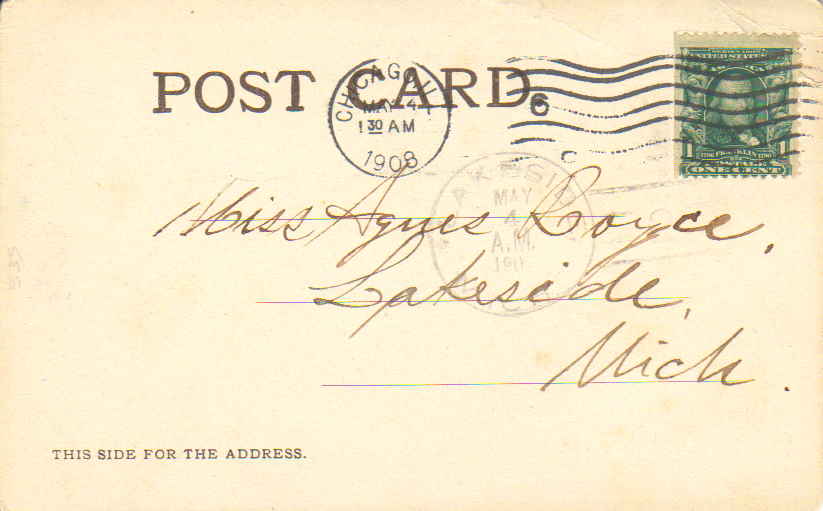 POST CARD
CHICAGO, ILL.
MAY 4
1 30 AM
1908
6
UNITED STATES
FRANKLIN
ONE CENT
LAKESIDE
MAY
4
A.M.
190
MICH.
Miss Agnes Royce,
Lakeside,
Mich.
THIS SIDE FOR THE ADDRESS.